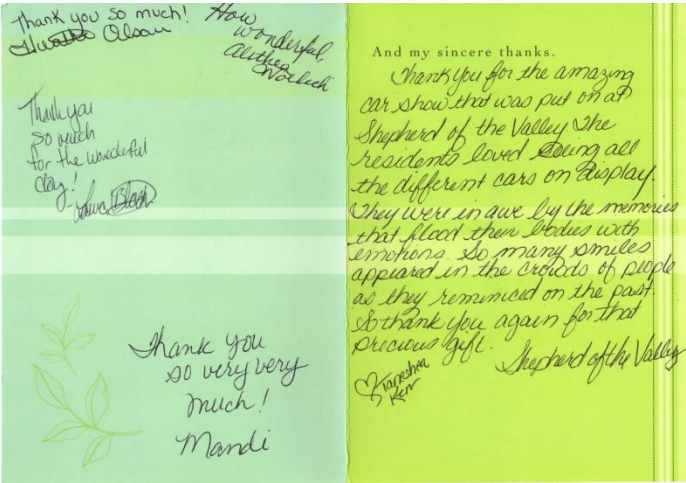 Thank you so much!
Olson
How
wonderful,
Alithea
Thank you
so much
for the wonderful
day!
Thank you
so very very
much!
Mandi
And my sincere thanks.
Thank you for the amazing
car show that was put on at
Shepherd of the Valley The
residents loved seeing all
the different cars on display.
They were in awe by the memories
that flood their bodies with
emotions. So many smiles
appeared in the crowds of people
as they reminiced on the past.
So thank you again for that
precious gift.
Shepherd of the Valley
Kerr